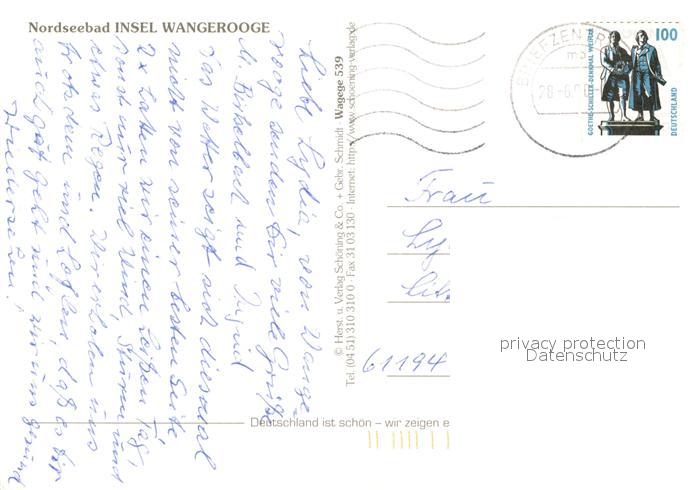 Nordseebad INSEL WANGEROOGE
Liebe Lydia, von Wange-
rooge senden Dir viele Grüße
M. und Ingrid
Das Wetter zeigt sich diesmal
nicht von seiner besten Seite
2x hatten wir einen heißen Tag,
sonst nur viel Wind, Sturm und
etwas Regen. Wir erholen uns
trotzdem und hoffen, daß es Dir
auch gut geht und wir uns gesund
wiedersehen!
© Herst. u. Verlag Schöning & Co. + Gebr. Schmidt · Wagege 539
Tel. (04 51) 310 310 0 · Fax 31 03 130 · Internet: http://www.schoening-verlag.de
BRIEFZEN
28-6.00
GOETHE-SCHILLER-DENKMAL WEIMAR
100
DEUTSCHLAND
Frau
Ly
61194
privacy protection
Datenschutz
Deutschland ist schön – wir zeigen e